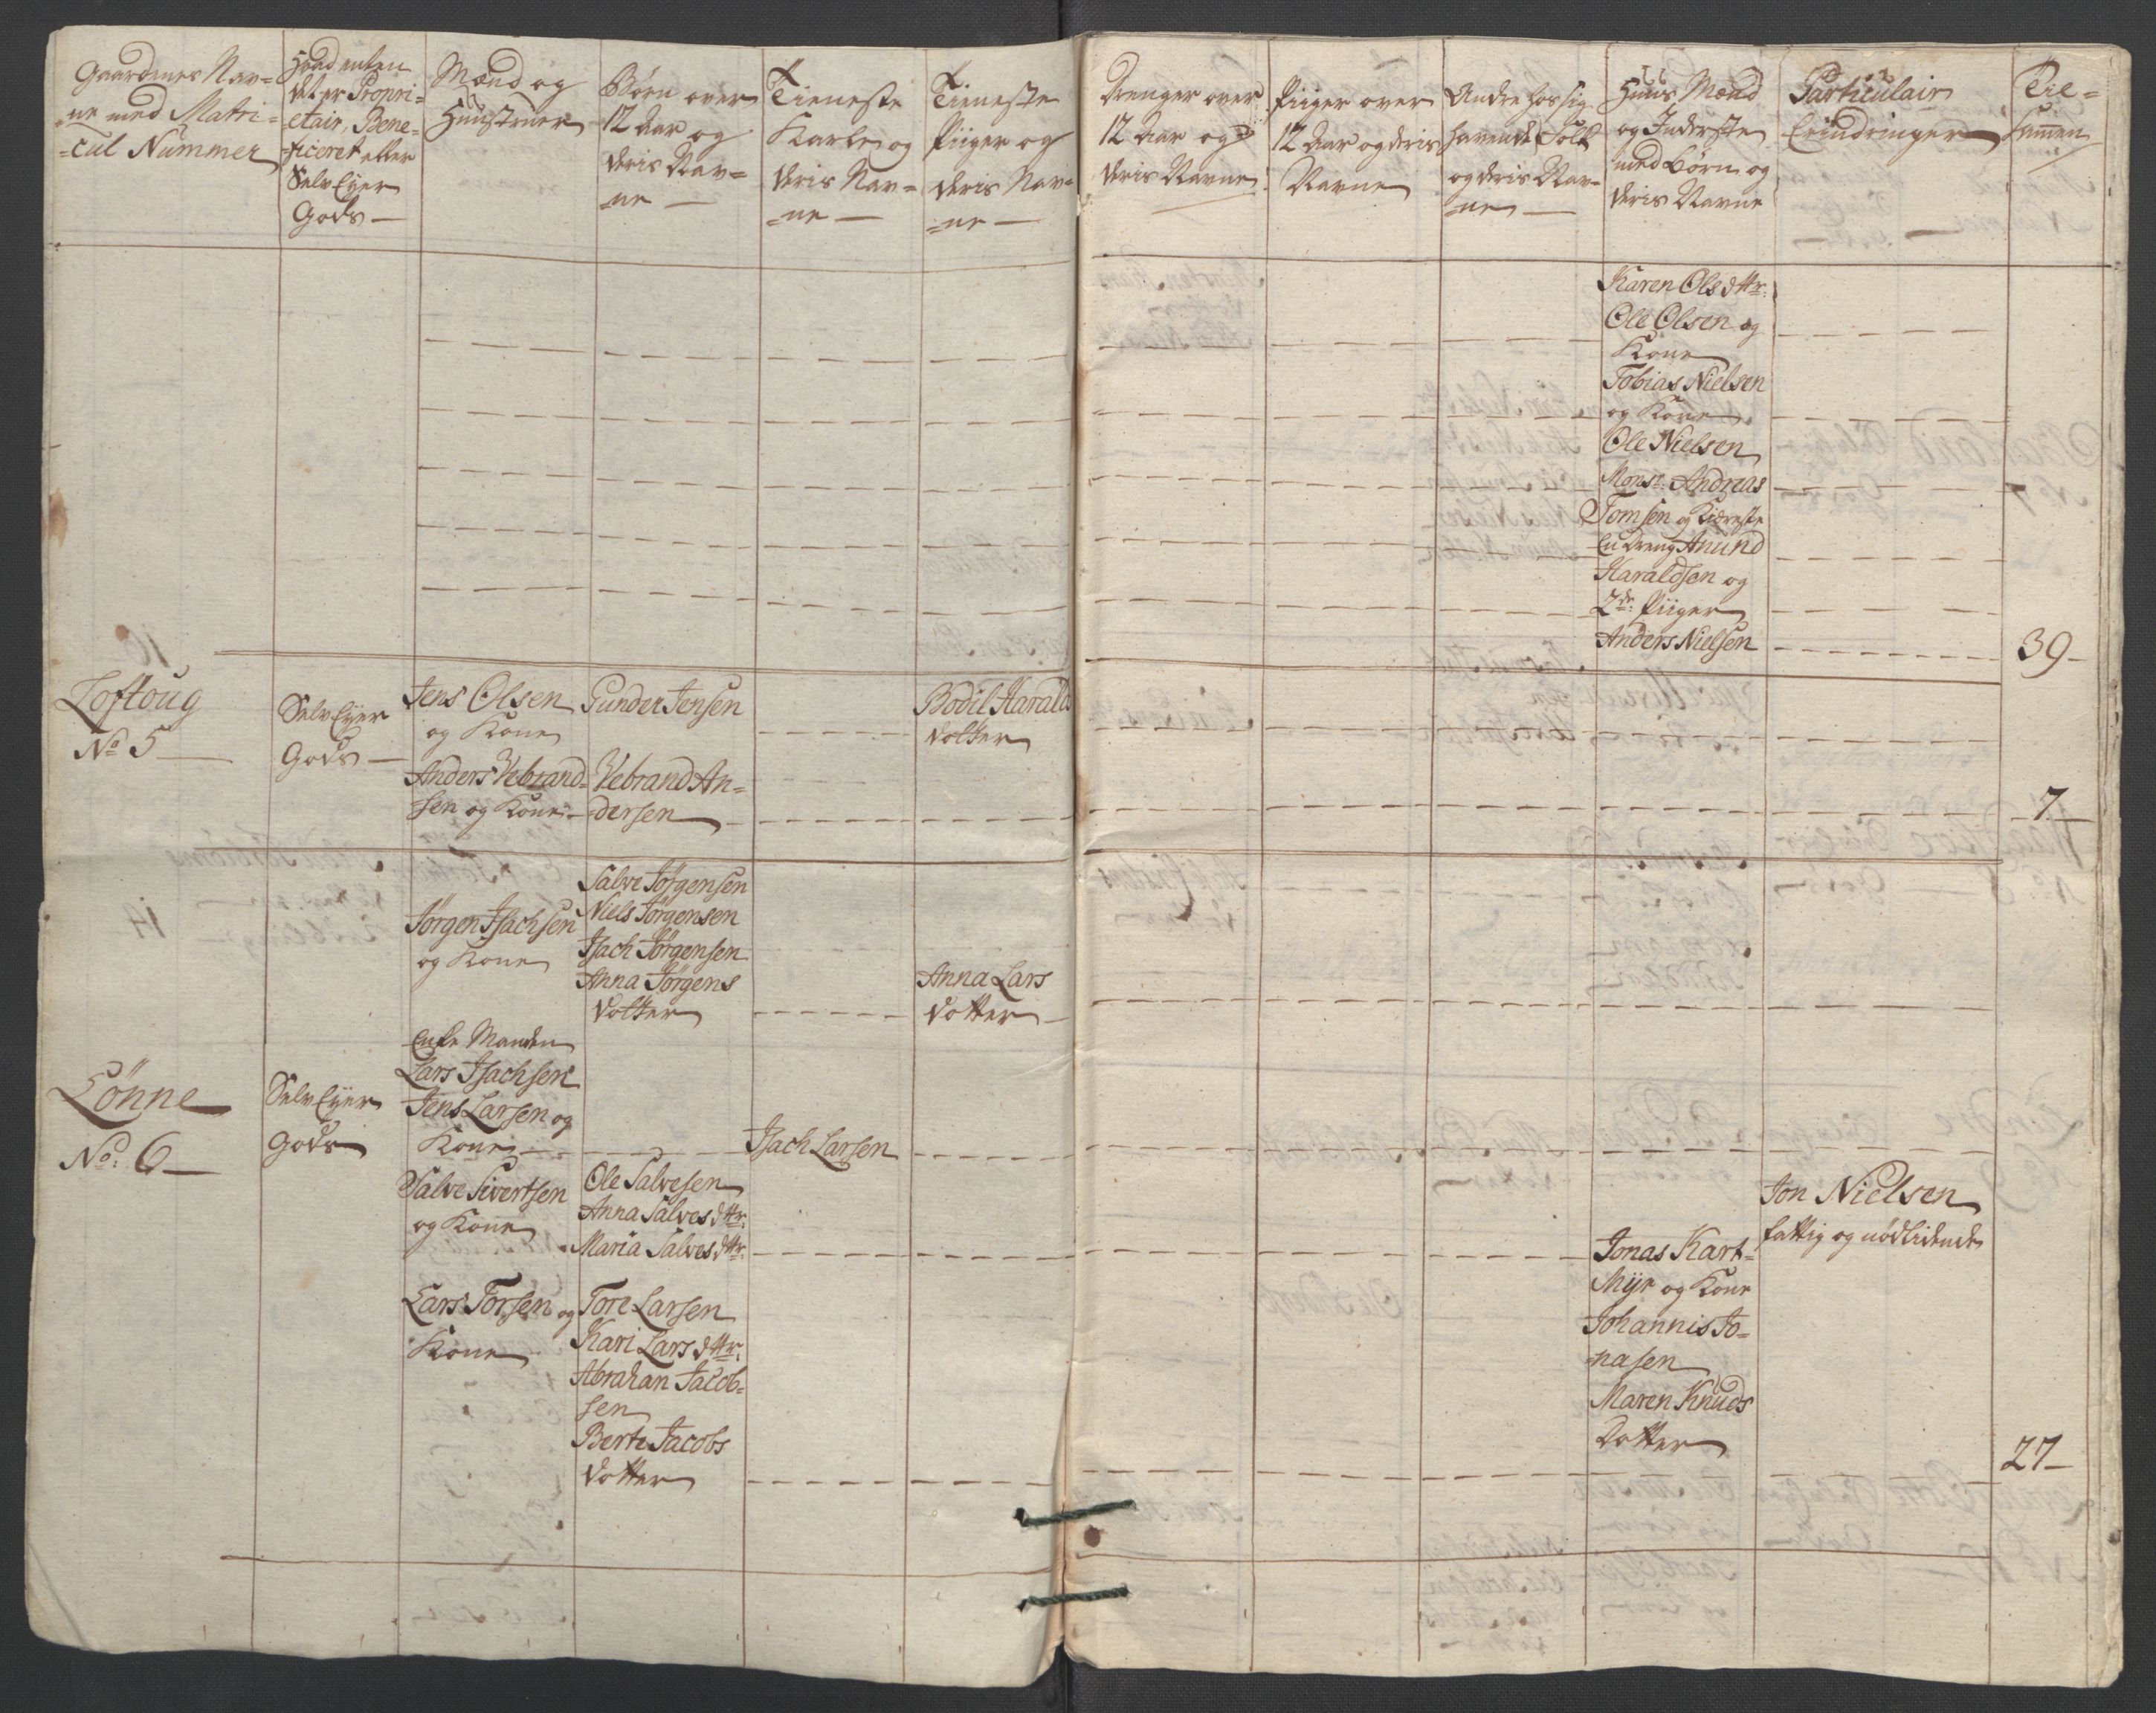 Gaardenes Nav=
=ne med Matri=
=cul Nummer
Hvad enten
det er Propri=
etair, Bene=
=ficeret eller
Selv Eyer
Gods —
Mænd og
Hustruer
Børn over
12 Aar og
deris Nav=
=ne —
Tieneste
Karle og
deris Nav=
=ne —
Tieneste
Piiger og
deris Nav=
=ne —
Drenger over
12 Aar og
deris Navne
Piiger over
12 Aar og deris
Navne
Andre hos sig
havende Folk
og deris Nav=
=ne —
Huus Mænd
og Inderste
med Børn og
deris Navne
Particulair
Erindringer
Karen Olsdttr:
Ole Olsen og
Kone
Tobias Nielsen
og Kone
Ole Nielsen
Monsr: Andreas
Tomsen og Kiæreste
En Dreng Anund
Haraldsen og
2de: Piiger
Anders Nielsen
39
Loftoug
No 5
Selv Eyer
Gods —
Jens Olsen
og Kone
Gunder Jensen
Bodil Harald
dotter
Anders Vebrand=
sen og Kone
Vebrand An=
=dersen
7
Jørgen Jsachsen
og Kone
Salve Jørgensen
Niels Jørgensen
Jsach Jørgensen
Anna Jørgens
dotter
Anna Lars
dotter
Lönne
No: 6
Selv Eyer
Gods
Enke Manden
Lars Jsachsen
Jens Larsen og
Kone
Jsach Larsen
Salve Sivertsen
og Kone
Ole Salvesen
Anna Salvesdttr:
Maria Salvesdttr:
Lars Torsen og
Kone
Tore Larsen
Kari Larsdttr:
Abrahan Jacob=
sen
Berte Jacobs
dotter
Jonas Kart=
Myr og Kone
Johannis Jo=
=nasen
Maren Knuds
Dotter
Jon Nielsen
fattig og nødlidende
27